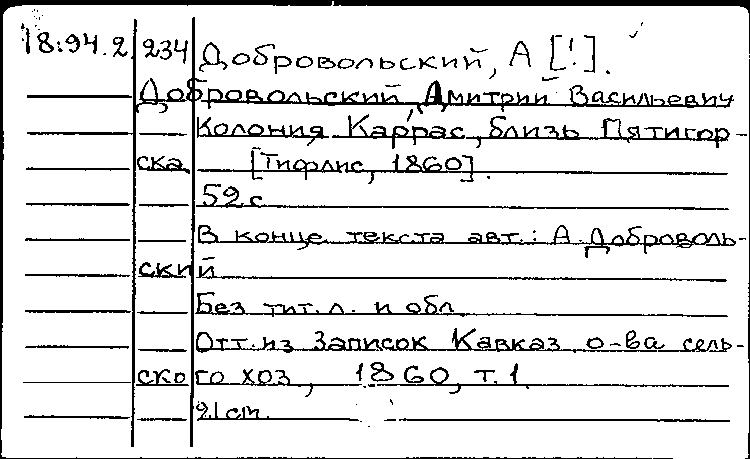 18:94.2 234 Добровольский, А [!].
Добровольский, Дмитрий Васильевич
Колония Каррас, близь Пятигор-
ска. [Тифлис, 1860].
52 с
В конце текста авт.: А. Доброволь-
ский
Без тит. л. и обл.
Отт. из Записок Кавказ. о-ва сель-
ского хоз., 1860, т. 1.
21 cm.